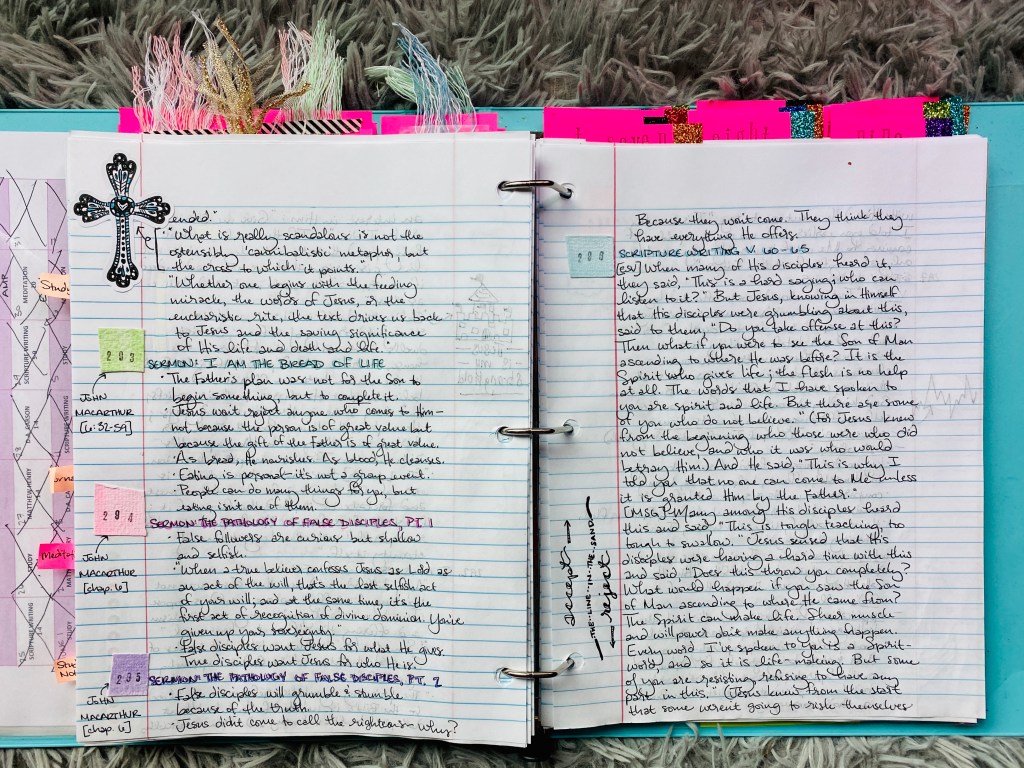 I seven
eight
nine
ended."
"What is really scandalous is not the
ostensibly 'cannibalistic' metaphor, but
the cross to which it points."
"Whether one begins with the feeding
miracle, the words of Jesus, or the
eucharistic rite, the text drives us back
to Jesus and the saving significance
of His life and death and life."
293
SERMON: I AM THE BREAD OF LIFE
JOHN
MACARTHUR
[6:32-59]
· The Father's plan was not for the Son to
begin something, but to complete it.
· Jesus won't reject anyone who comes to Him—
not because the person is of great value but
because the gift of the Father is of great value.
· As bread, He nourishes. As blood, He cleanses.
· Eating is personal—it's not a group event.
· People can do many things for you, but
eating isn't one of them.
294
SERMON: THE PATHOLOGY OF FALSE DISCIPLES, PT. 1
JOHN
MACARTHUR
[chap. 6]
· False followers are curious but shallow
and selfish.
· "When a true believer confesses Jesus as Lord as
an act of the will, that's the last selfish act
of your will; and at the same time, it's the
first act of recognition of divine dominion. You've
given up your sovereignty."
· False disciples want Jesus for what He gives.
True disciples want Jesus for who He is.
295
SERMON: THE PATHOLOGY OF FALSE DISCIPLES, PT. 2
JOHN
MACARTHUR
[chap. 6]
· False disciples will grumble & stumble
because of the truth.
· Jesus didn't come to call the righteous—why?
Because they won't come. They think they
have everything He offers.
SCRIPTURE WRITING V. 60-65
[ESV] When many of His disciples heard it,
they said, "This is a hard saying; who can
listen to it?" But Jesus, knowing in Himself
that His disciples were grumbling about this,
said to them, "Do you take offense at this?
Then what if you were to see the Son of Man
ascending to where He was before? It is the
Spirit who gives life; the flesh is no help
at all. The words that I have spoken to
you are spirit and life. But there are some
of you who do not believe." (For Jesus knew
from the beginning who those were who did
not believe, and who it was who would
betray Him.) And He said, "This is why I
told you that no one can come to Me unless
it is granted Him by the Father."
[MSG] Many among His disciples heard
this and said, "This is tough teaching, too
tough to swallow." Jesus sensed that His
disciples were having a hard time with this
and said, "Does this throw you completely?
What would happen if you saw the Son
of Man ascending to where He came from?
The Spirit can make life. Sheer muscle
and willpower don't make anything happen.
Every word I've spoken to you is a Spirit-
word, and so it is life-making. But some
of you are resisting, refusing to have any
part in this." (Jesus knew from the start
that some weren't going to risk themselves
accept
-THE-LINE-IN-THE-SAND-
reject
MEDITATION
SCRIPTURE WRITING
STUDY